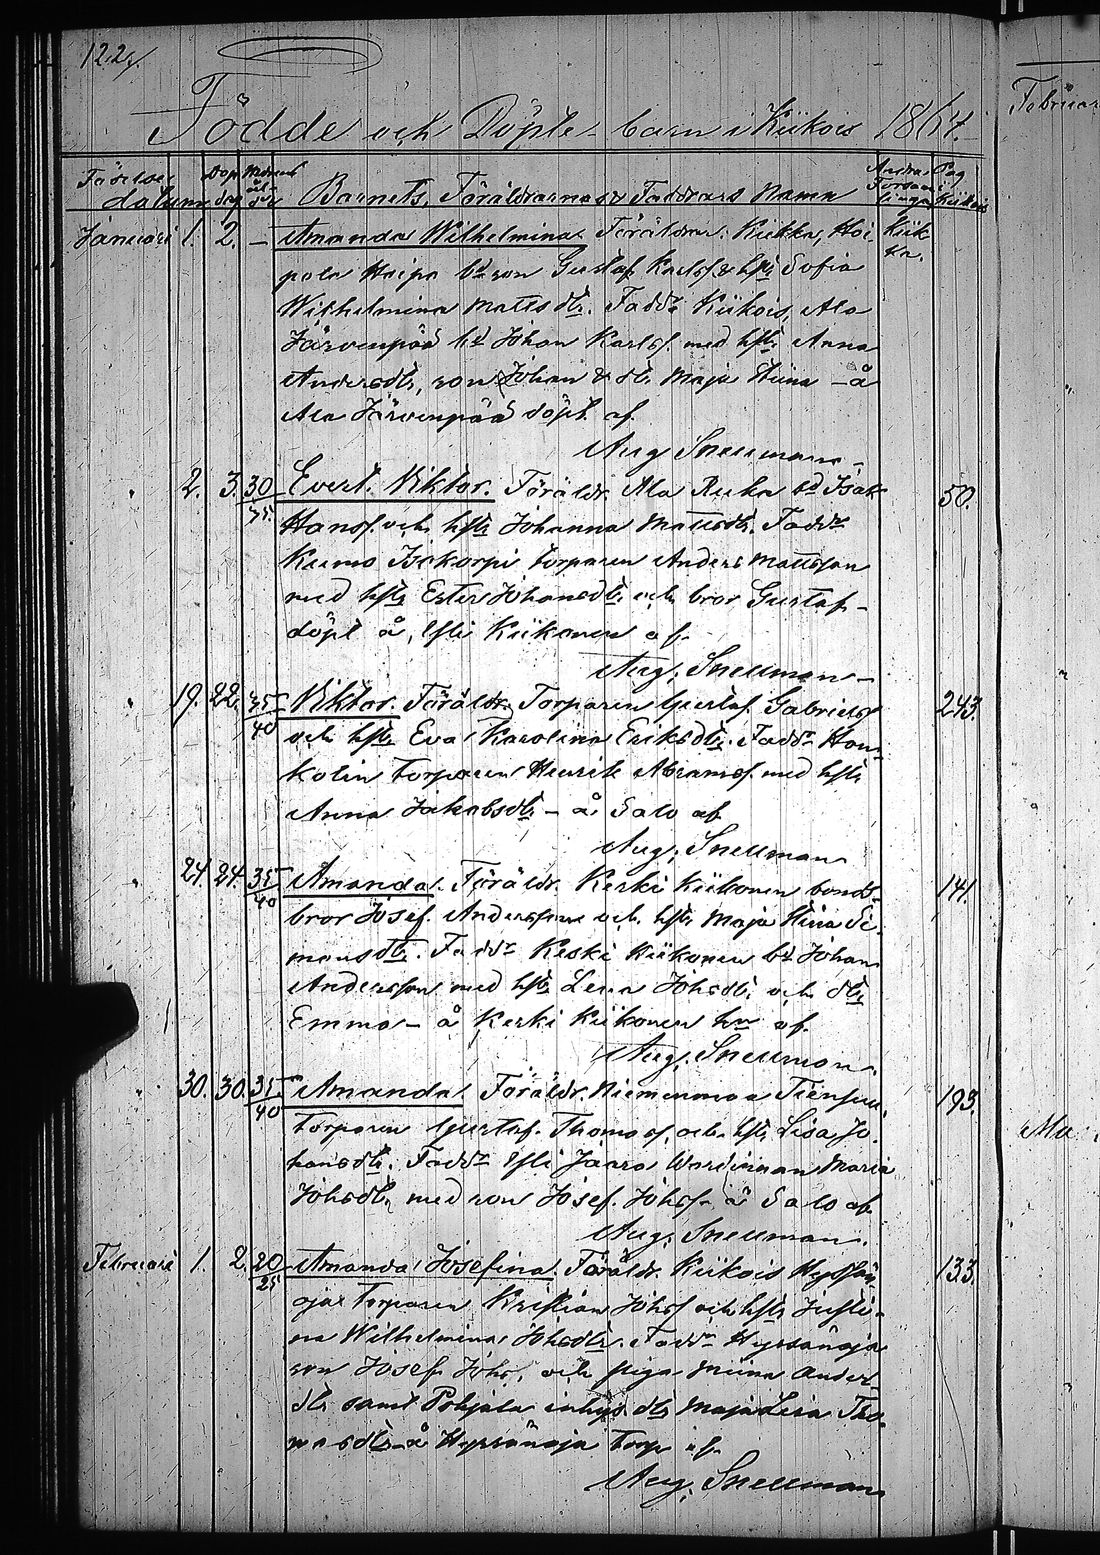 122,
Födde och Döpte barn i Kiikois 1864.
Februari
Födelse datum Dop dag Modrens ål- der Barnets, Föräldrarnas & Faddrars Namn Andra Försam- lingar Pag Kiikois
Januari 1. 2. – Amanda Wilhelmina. Föräldrar: Kiikka, Hei- Kiik
pola Heipa bd son Gustaf Karlsf & hstr Sofia ka.
Wilhelmina Mattsdtr. Faddr Kiikois, Ala
Järvenpää bd Johan Karlsf. med hstr Anna
Andersdtr, son Johan & dtr Maja Stina – å
Ala Järvenpää döpt af
Aug Snellman –
" 2. 3. 30/75. Evert Viktor. Föräldr. Ala Ruha bd Isak 50.
Hansf. och hstr Johanna Mattsdtr. Faddr
Kumo torparen Anders Mattsson
med hstr Ester Johansdtr och bror Gustaf –
döpt å, Yli Kiikonen af
Aug. Snellman –
" 19. 22. 35/40 Viktor. Föräldr. Torparen Gustaf Gabrielsf 243.
och hstr Eva Karolina Eriksdtr. Faddr Hon-
kolin torparen Henrik Abramsf. med hstr
Anna Jakobsdtr – å Salo af
Aug. Snellman
" 24. 24. 35/40 Amanda. Föräldr. Keski Kiikonen bonds- 141.
bror Josef Andersson och hstr Maja Stina Si-
monsdtr. Faddr Keski Kiikonen bd Johan
Andersson med hstr Lena Johsdtr och dtr
Emma – å Keski Kiikonen hn af
Aug. Snellman.
30. 30. 35/40 Amanda. Föräldr. Niemenmaa Tiensuu 193.
Torparen Gustaf Thomasf. och hstr Lisa Jo-
hansdtr. Faddr Yli Jaara Maria
Johsdtr med son Josef Johsf – å Salo af
Aug. Snellman.
Februari 1. 2. 20/25 Amanda Josefina. Föräldr. Kiikois Hyssän- 133.
oja Torparen Kristian Johsf och hstr Justi-
na Wilhelmina Johsdtr. Faddr Hyssänoja
son Josef Johs. och piga Miina Anders-
dtr samt Pohjala inhys dtr Maja Lisa Tho-
masdtr – å Hyssänoja Torp af
Aug. Snellman